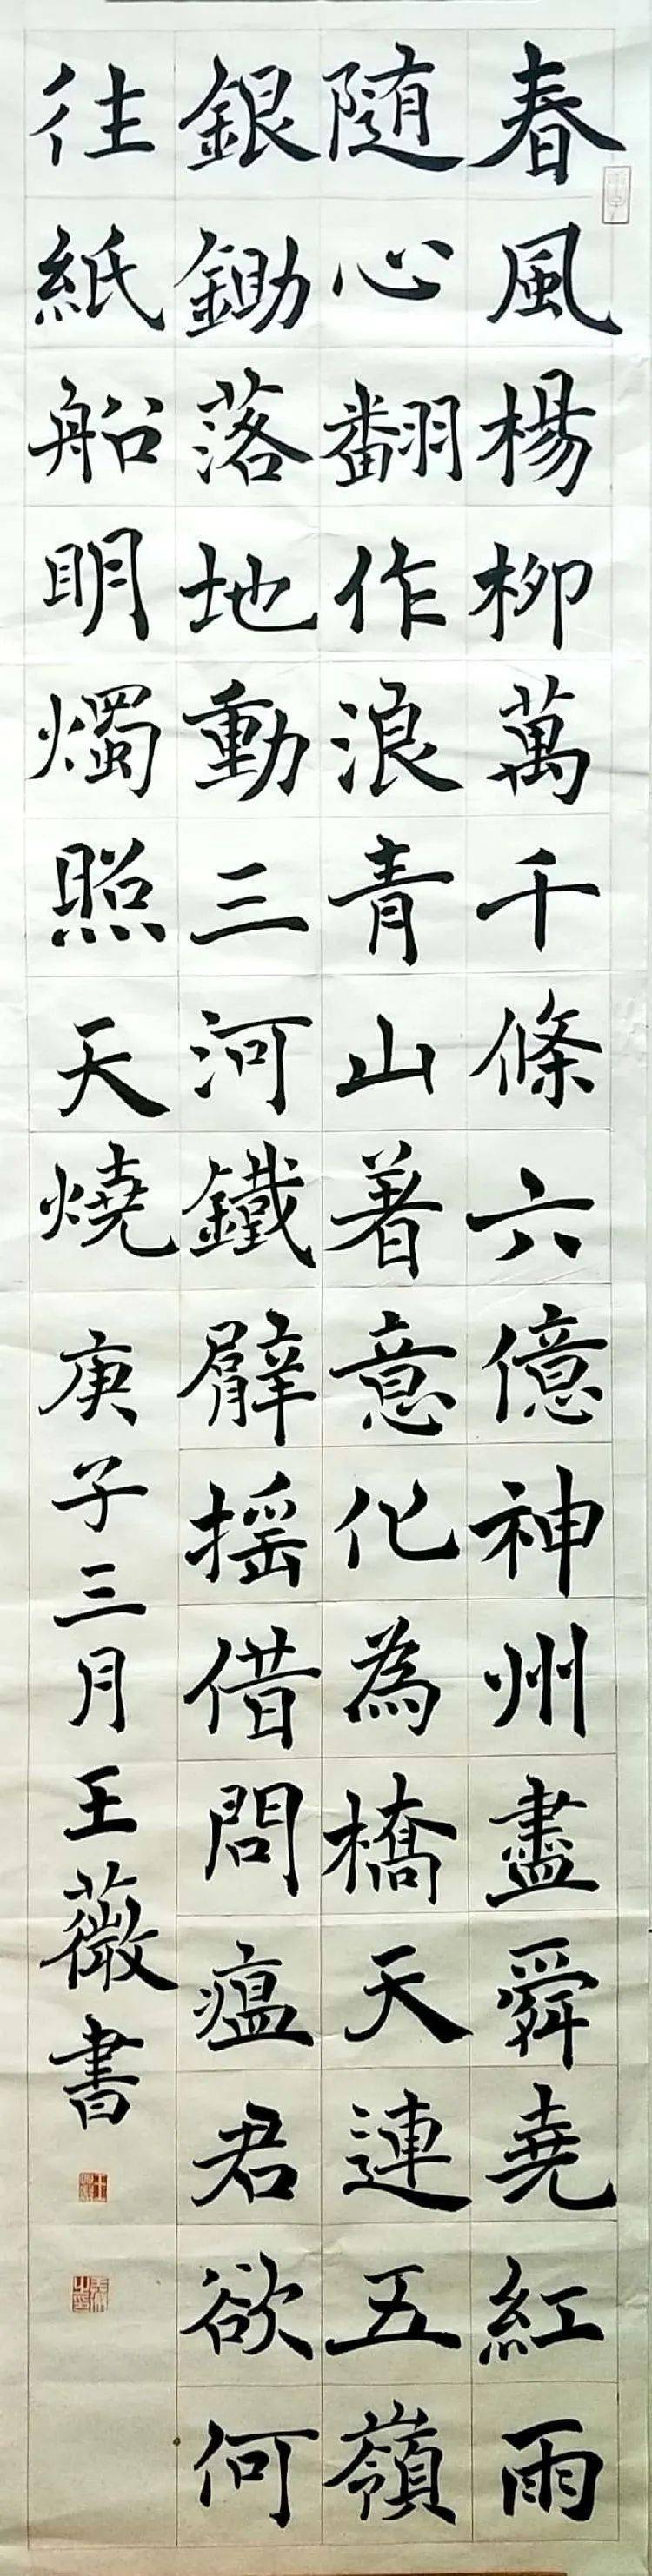 春風楊柳萬千條六億神州盡舜堯紅雨
随心翻作浪青山著意化為橋天連五嶺
銀鋤落地動三河鐵臂揺借問瘟君欲何
往紙船明燭照天燒庚子三月王薇書